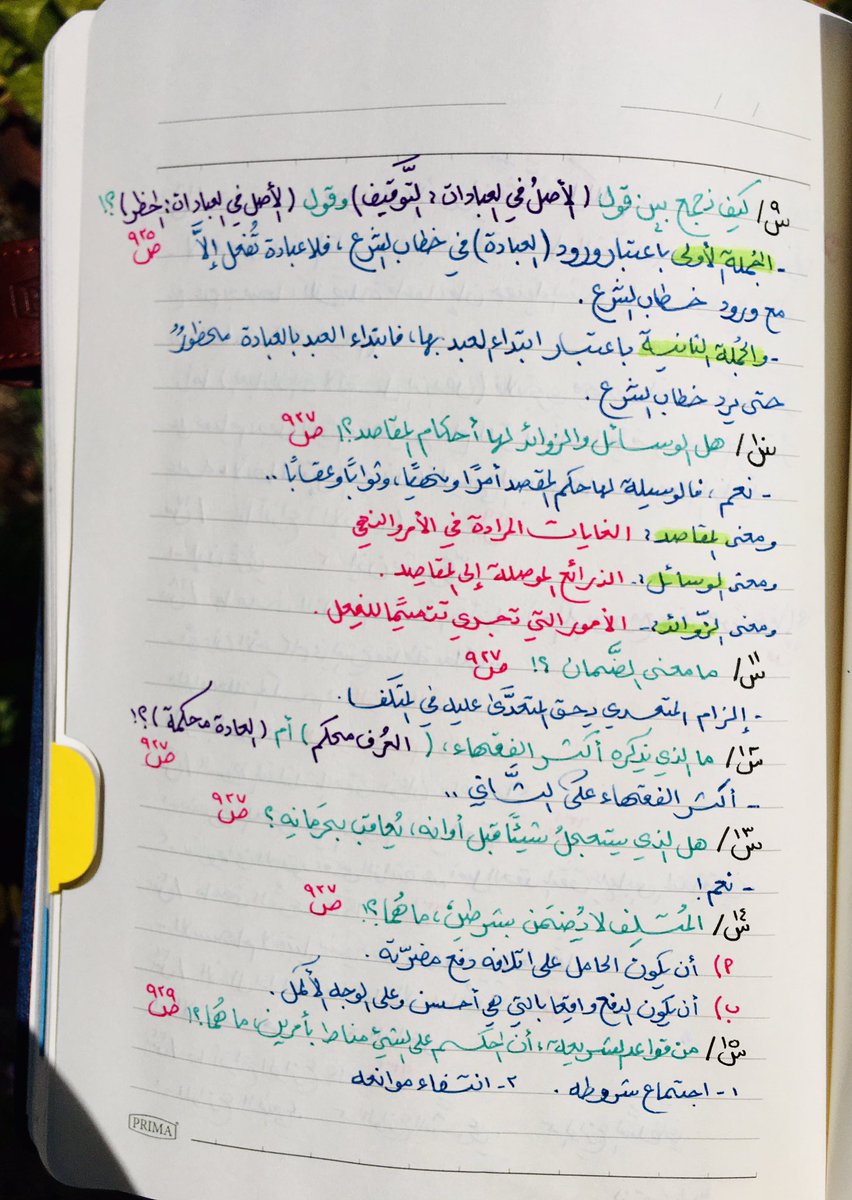 س٩/ كيف نجمع بين قول (الأصلُ في العبادات: التَّوقيف) وقول (الأصل في العبادات: الحظر)؟!
- الجُملة الأولى باعتبار ورود (العبادة) في خطاب الشرع، فلا عبادة تُفعل إلاَّ ص٩٢٥
مع ورود خطاب الشرع.
- والجُملة الثانية باعتبار ابتداء العبد بها، فابتداء العبد بالعبادة محظورٌ
حتى يرد خطاب الشرع.
س١٠/ هل الوسائل والزوائد لها أحكام المقاصد؟! ص٩٢٧
- نعم، فالوسيلة لها حكم المقصد أمرًا ونهيًا، وثوابًا وعقابًا..
ومعنى المقاصد: الغايات المرادة في الأمر والنهي
ومعنى الوسائل:- الذرائع الموصلة إلى المقاصد.
ومعنى الزَّوائد:- الأمور التي تجري تتميمًا للفعل.
س١١/ ما معنى الضَّمان؟! ص٩٢٧
- إلزام المتعدي بحق المتعدَّى عليه في
س١٢/ ما الذي يذكره أكثر الفقهاء، (العُرف محكم) أم (العادة محكمة)؟! ص٩٢٧
- أكثر الفقهاء على الثَّاني..
س١٣/ هل الذي يستعجلُ شيئًا قبل أوانه، يُعاقب بحَرمانِه؟ ص٩٢٧
- نعم!
س١٤/ المُتلِف لا يُضمَن بشرطين، ما هُما؟! ص٩٢٧
أ) أن يكون الحامل على اتلافه دفع مضرّته.
ب) أن يكون الدفع واقعا بالتي هي أحسن وعلى الوجه الأكمل.
س١٥/ من قواعد الشريعة، أن الحكم على الشيئ مناط بأمرين، ما هُما؟! ص٩٢٩
١- اجتماع شروطه. ٢- انتفاء موانعه
PRIMA